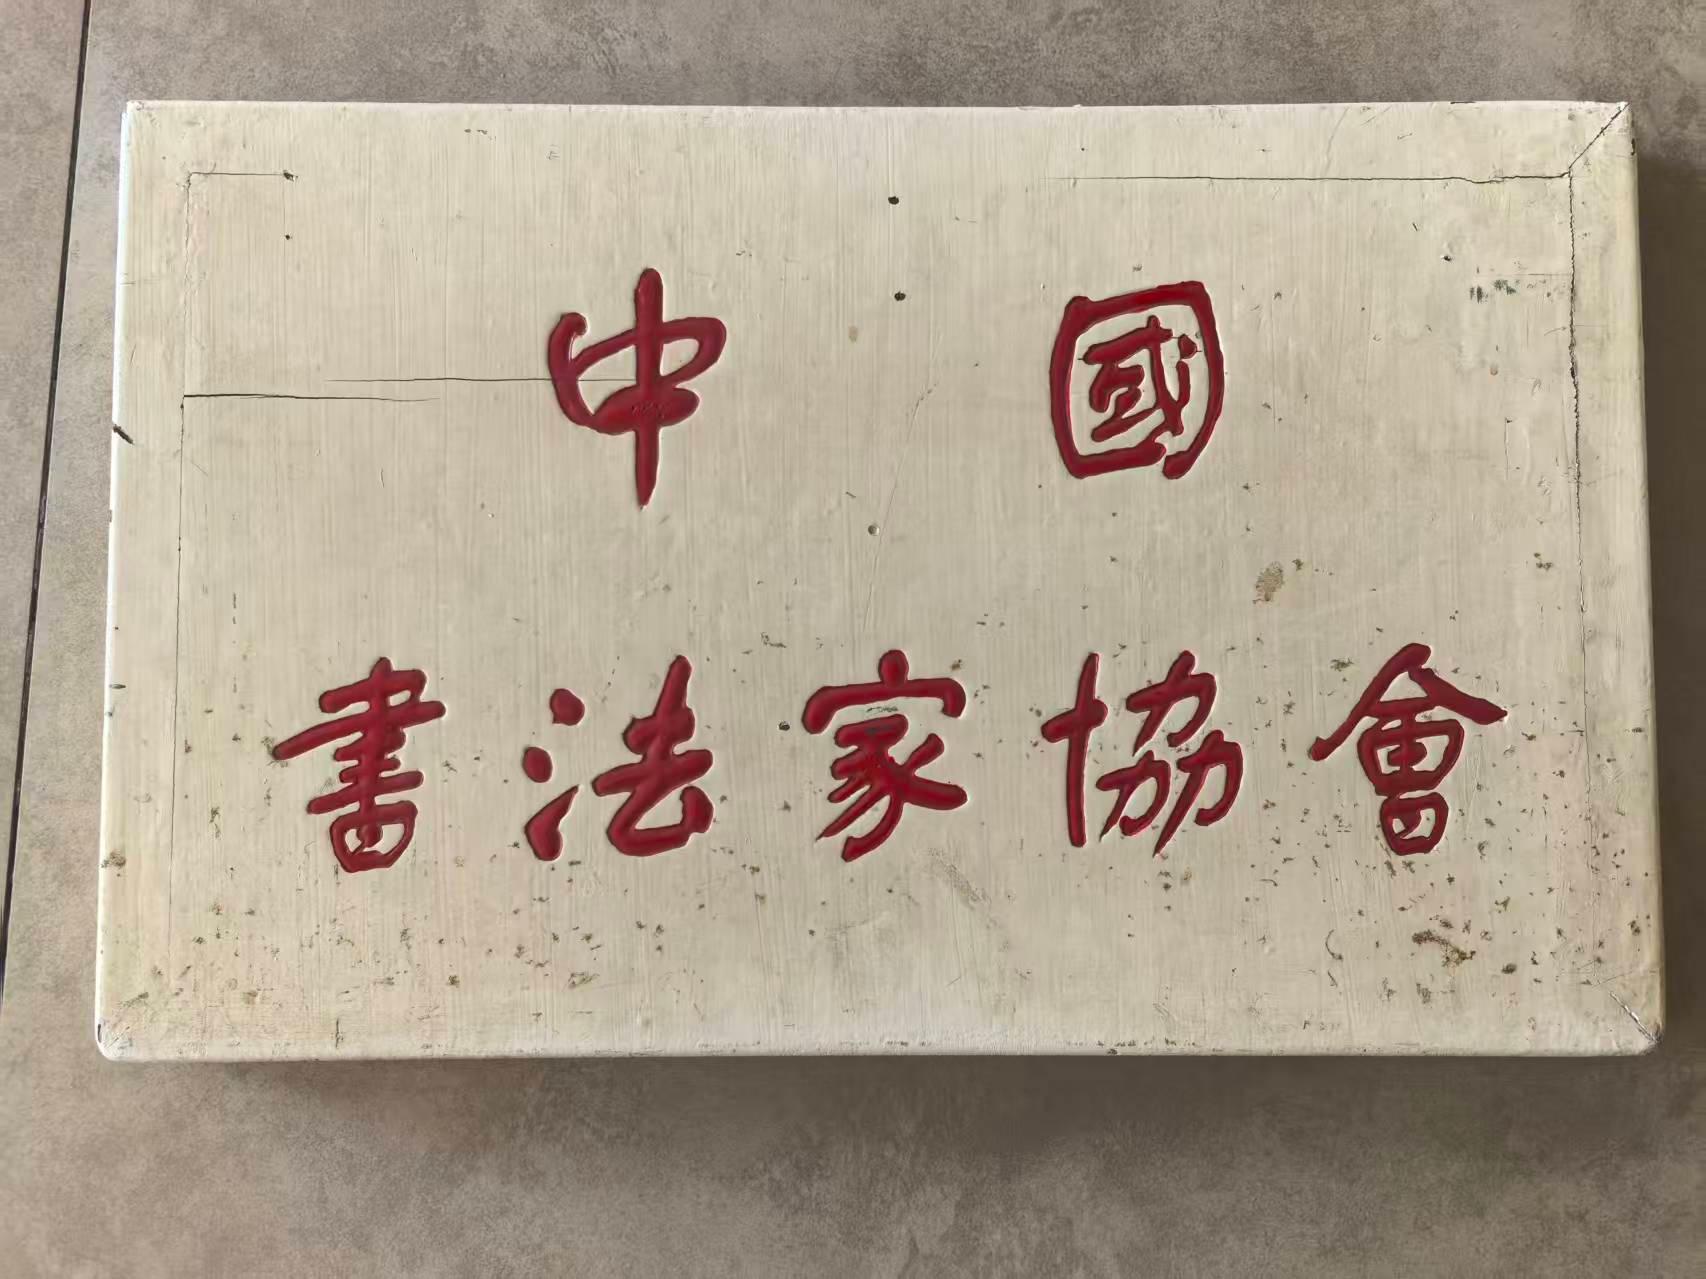 中國
書法家協會